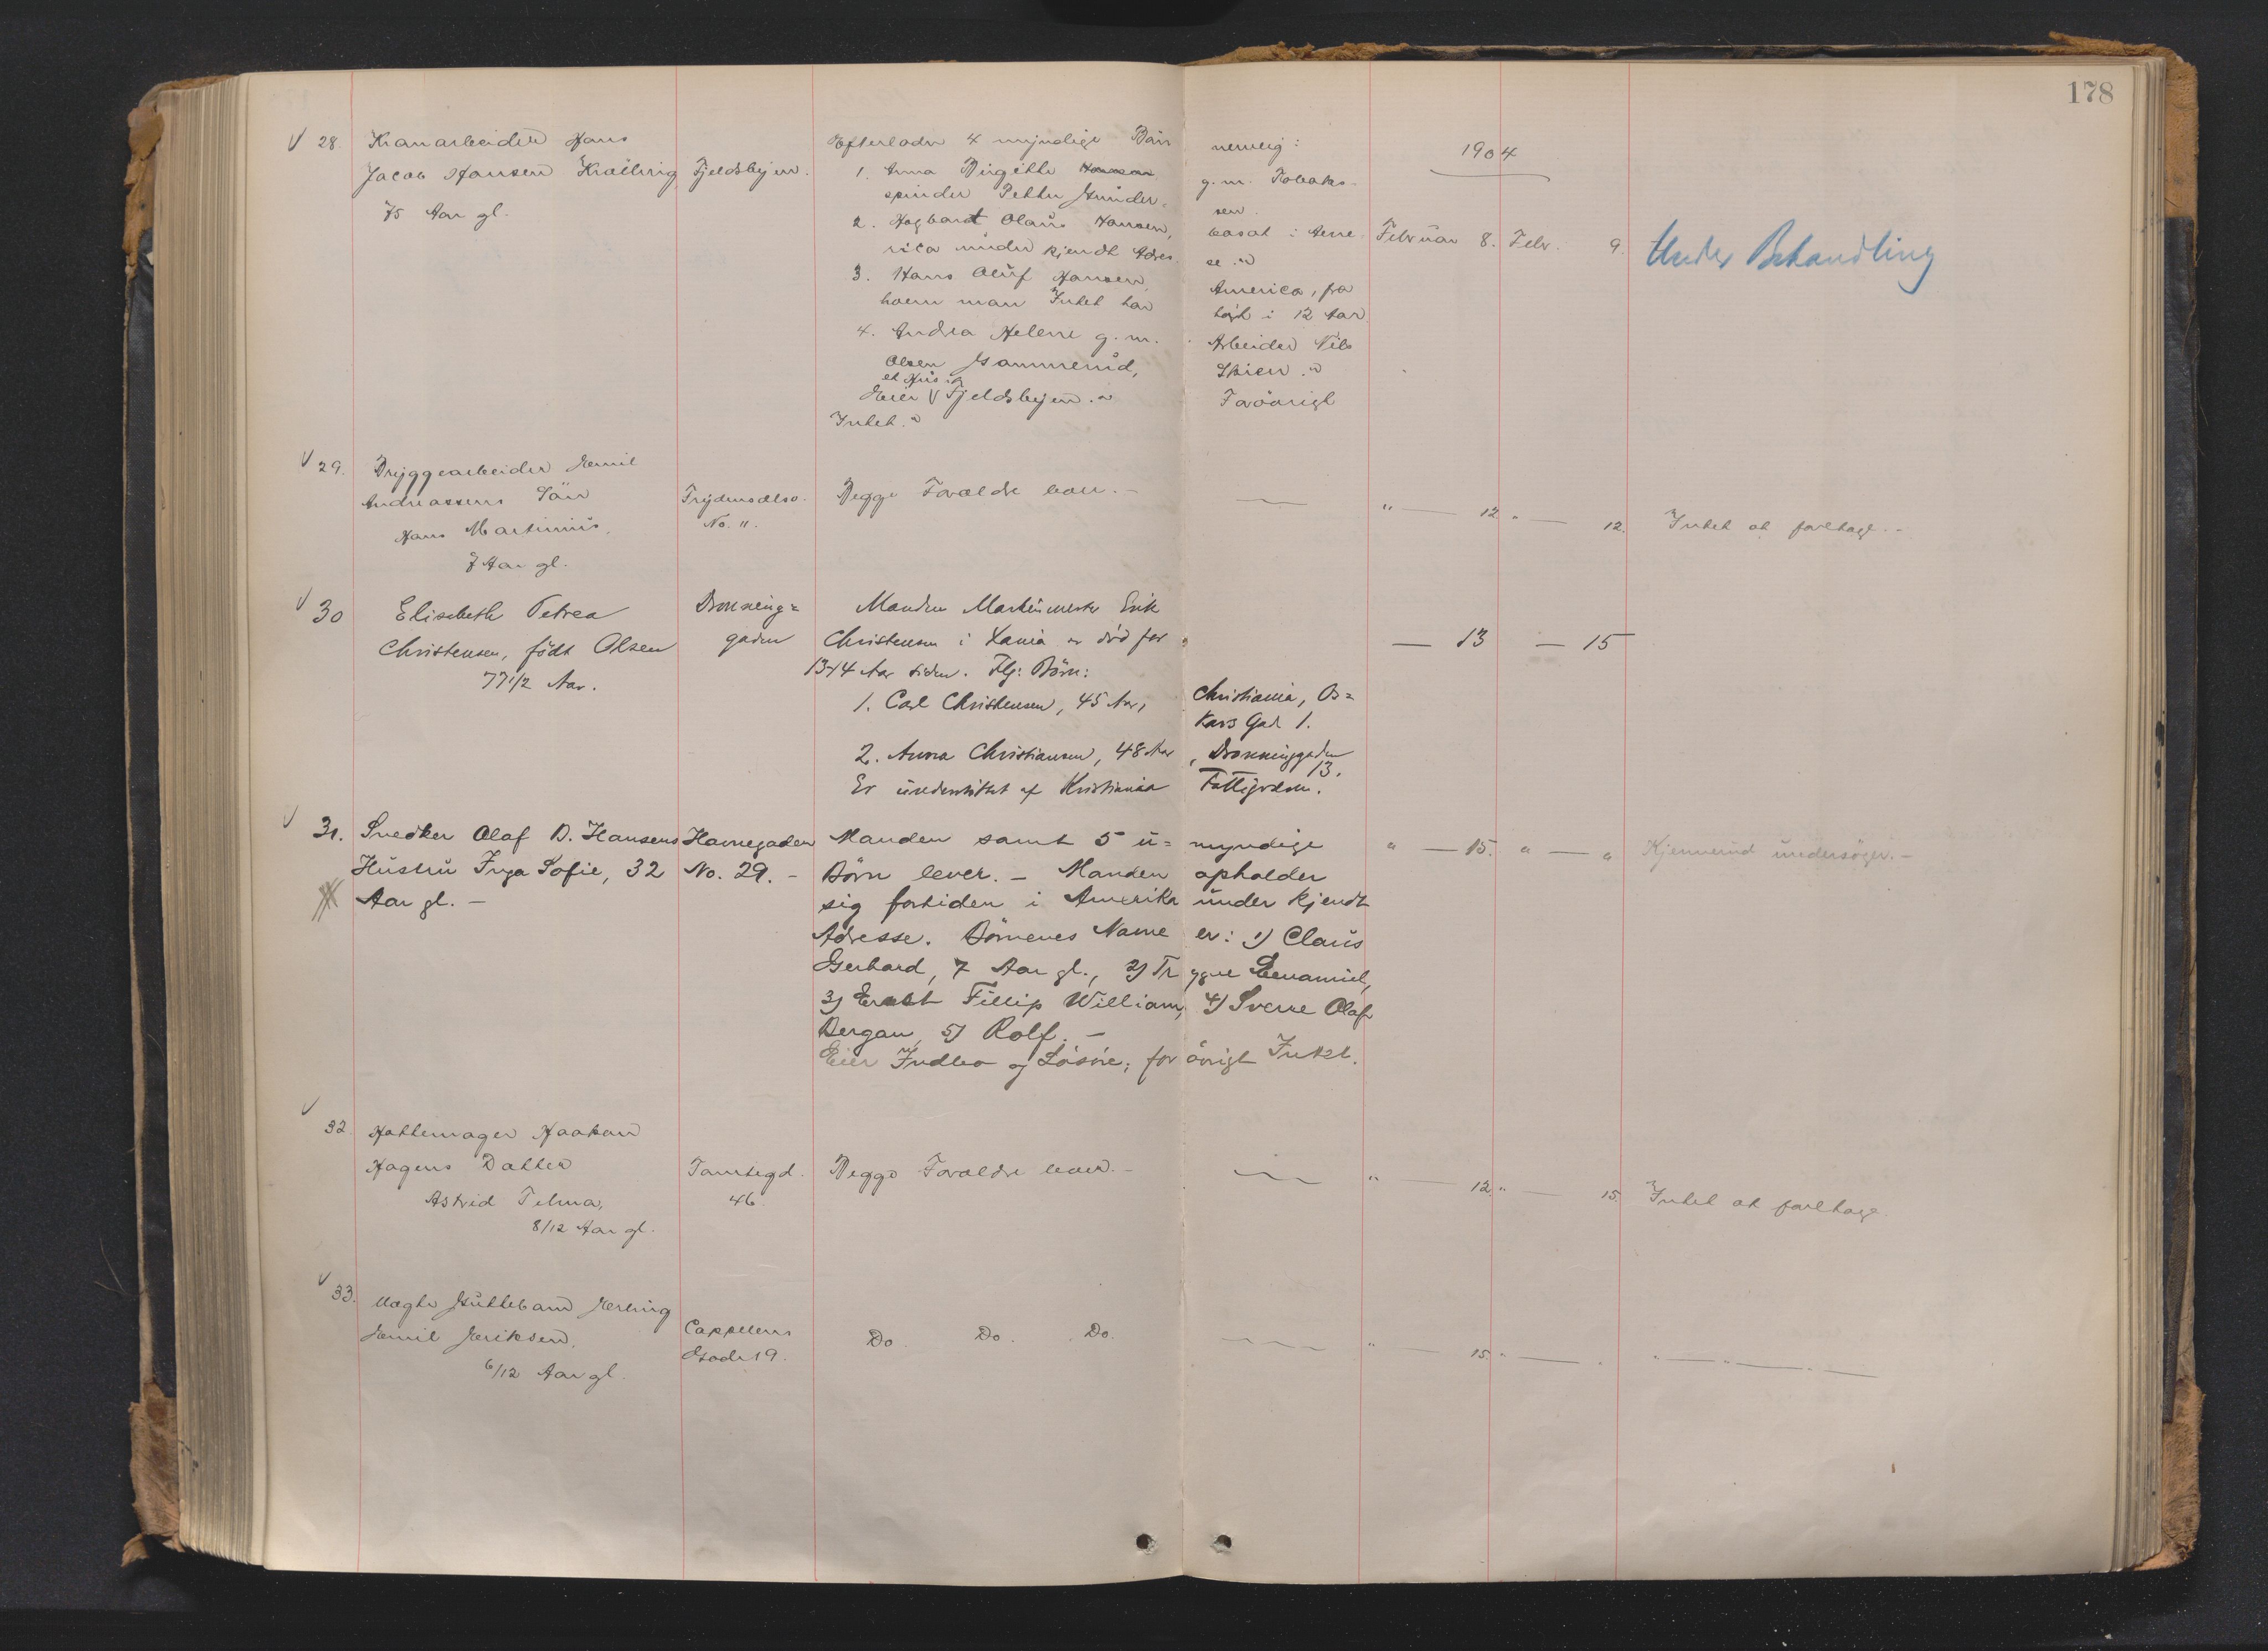 178
1904
V 28. Kranarbeider Hans
Jacob Hansen Kræhrig
75 Aar gl.
Fjeldsbyen.
Efterlader 4 myndige Børn nemlig:
1. Anna Birgitte Hansen g. m. Tobaks-
spinder Petter Gunder- sen.
2. Hagbart Olaus Hansen, bosat i Ame-
rica under kjendt Adres- se.
3. Hans Oluf Hansen, America, fra
hvem man Intet har hørt i 12 Aar
4. Andrea Helene g. m. Arbeider Nils
Olsen Gammerud, Skien.
et Hus i
Eier V Fjeldsbyen. Forøvrigt
Intet.
Februar 8. Febr. 9.
Under Behandling
V 29. Bryggearbeider Emil
Andreassens Søn
Hans Martinius,
7 Aar gl.
Frydensdlso.
No. 11.
Begge Forældre lever. -
" — 12 " — 12.
Intet at foretage. -
V 30 Elisabeth Petrea
Christensen, født Olsen
77 1/2 Aar.
Dronning=
gaden
Manden Maskinmester Erik
Christensen i Xania er død for
13-14 Aar siden. Flg: Børn:
1. Carl Christensen, 45 Aar, Christiania, Os=
kars Gad 1.
2. Anna Christiansen, 48 Aar, Dronninggaden
13.
Er understøttet af Kristiania Fattigvæsen.
— 13 — 15
V 31. Snedker Olaf B. Hansens
Hustru Inga Sofie, 32
Aar gl. -
Havnegaden
No. 29. -
Manden samt 5 u= myndige
Børn lever. - Manden opholder
sig fortiden i Amerika under kjendt
Adresse. Børnenes Navne er: 1) Claus
Gerhard, 7 Aar gl., 2) Trygve Emanuel,
3) Ernst Fillip William, 4) Sverre Olaf
Bergan, 5) Rolf. -
Eier Indbo og Løsøre; for øvrigt Intet.
" — 15. " — "
Kjennerud undersøger. -
V 32. Hattemager Haakon
Hagens Datter
Astrid Telma,
8/12 Aar gl.
Tomtegd.
46
Begge Forældre lever. -
" — 12 " — 15.
Intet at foretage.
V 33. Uægte Guttebarn Erling
Emil Eriksen,
6/12 Aar gl.
Cappelens
Gade 19.
Do. Do. Do.
" — 15. " — "
" — " — " —